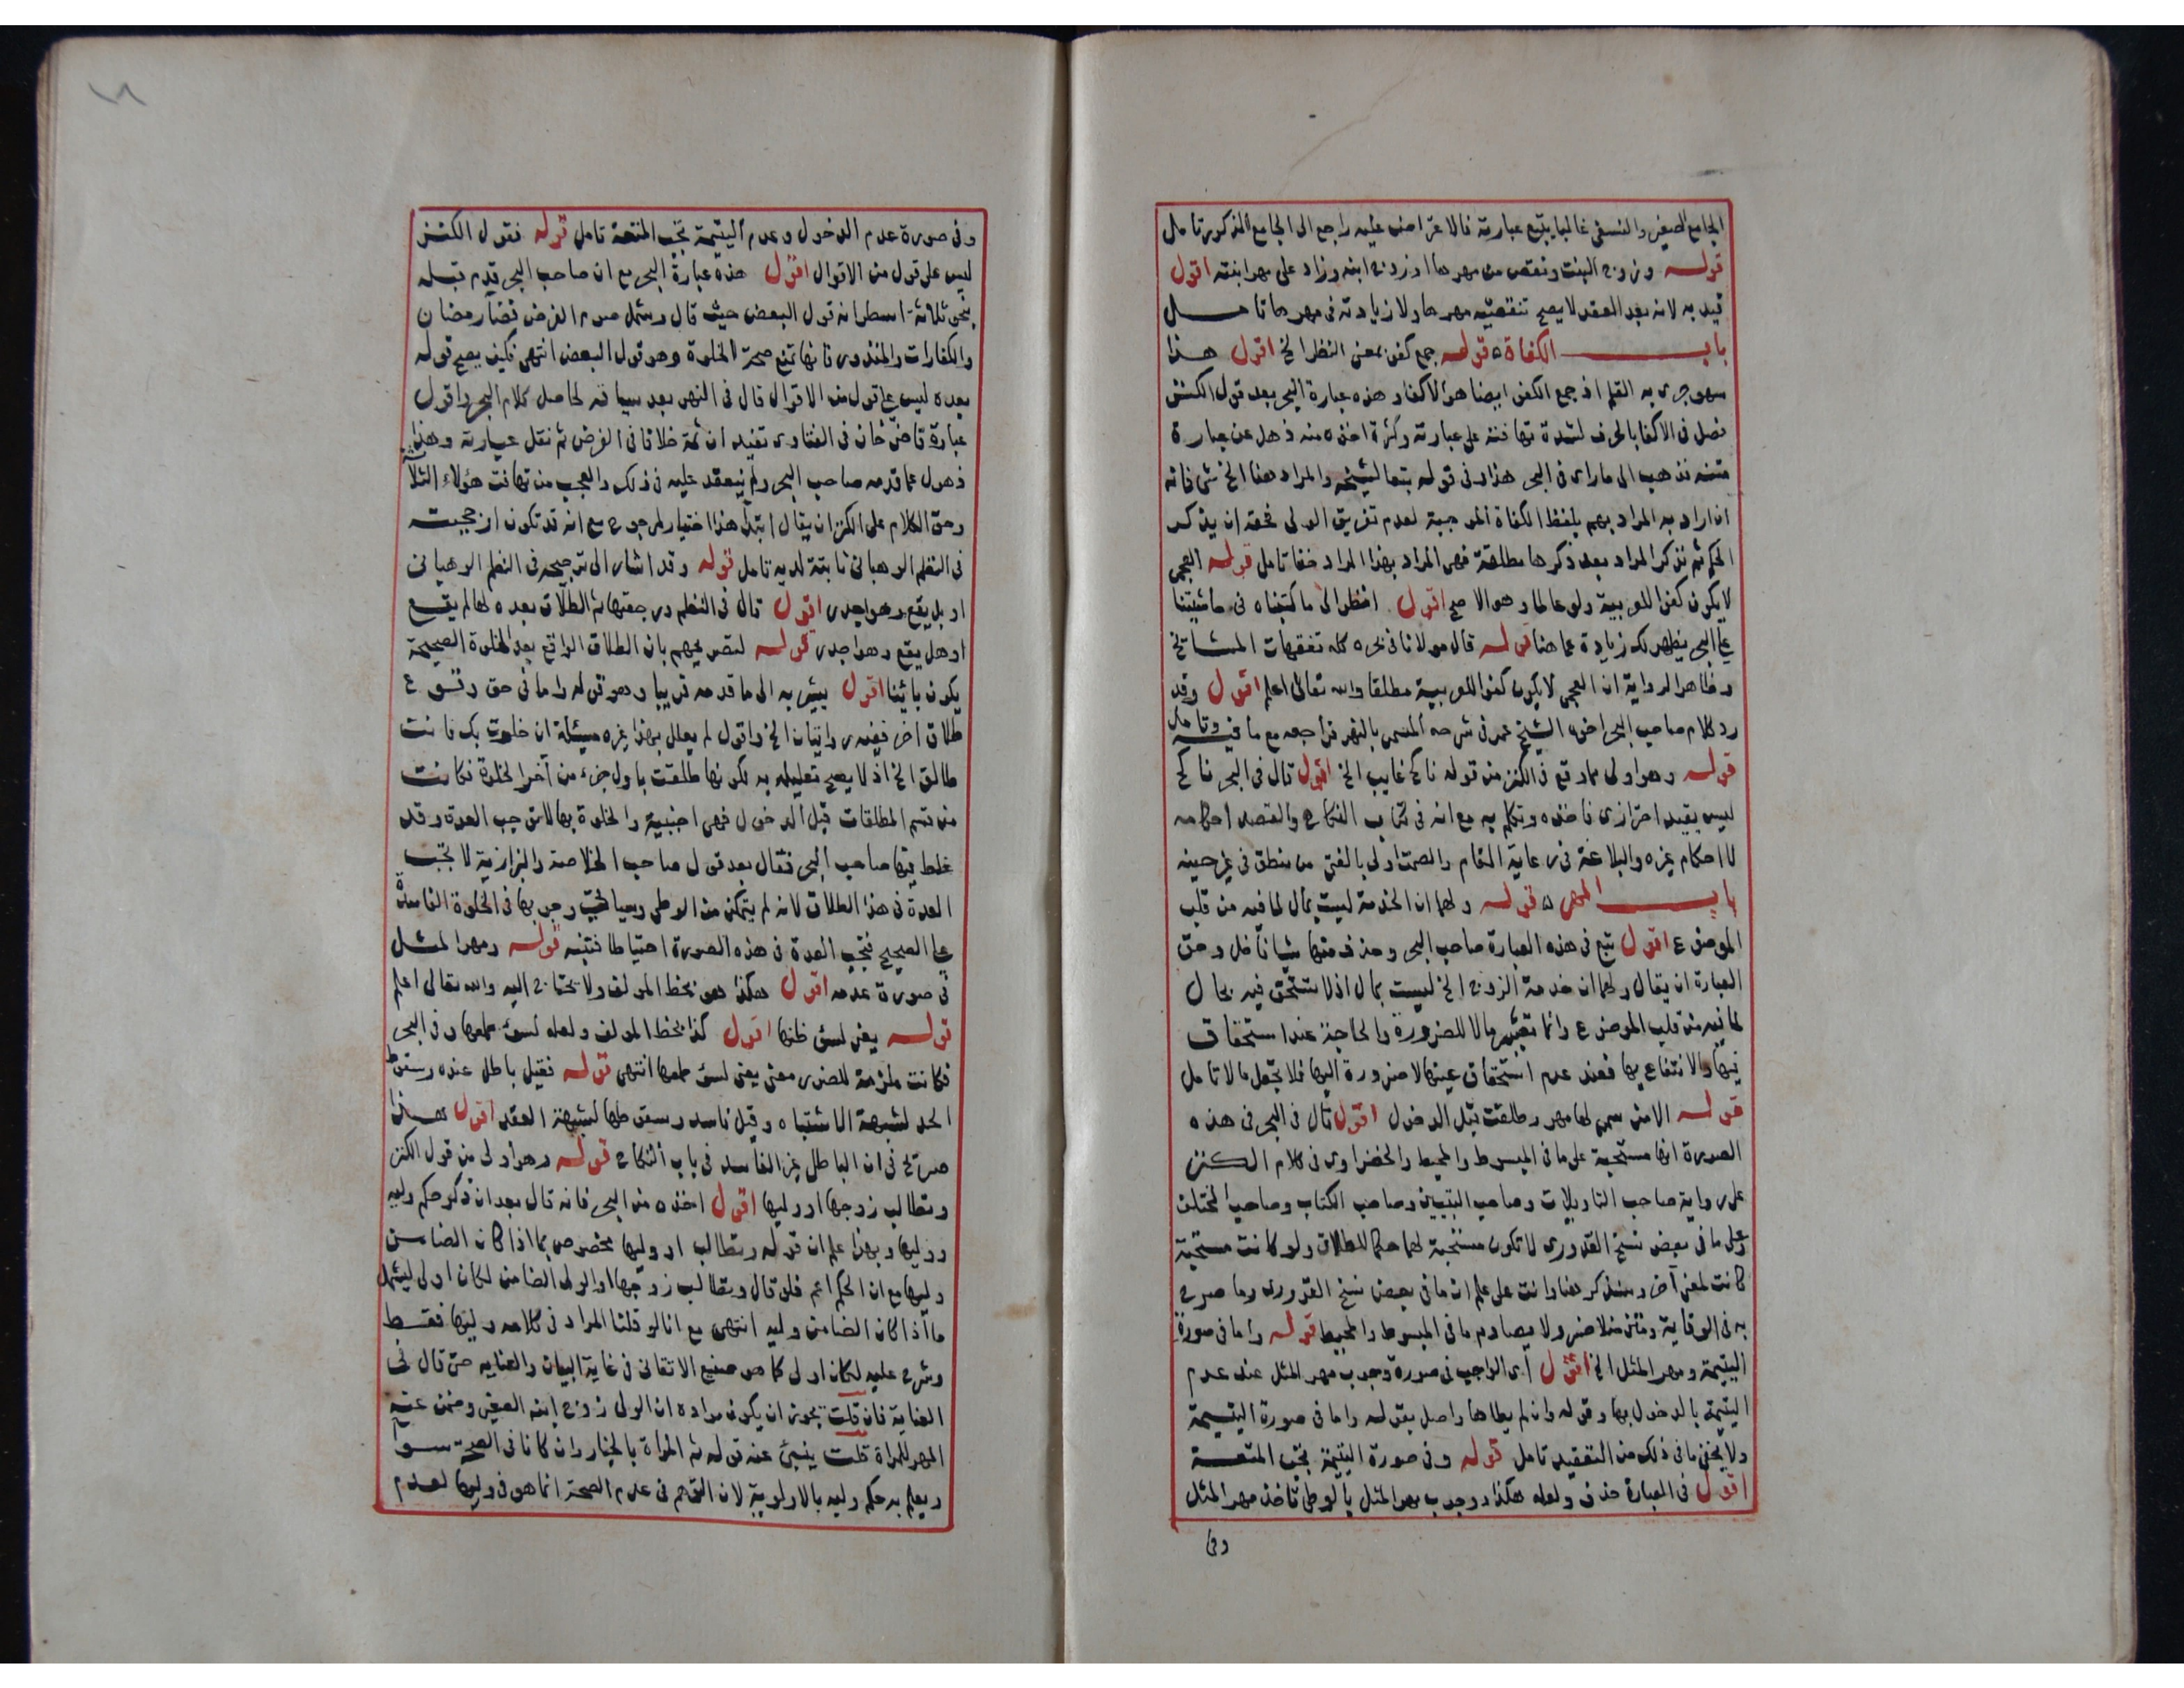 الجامع الصغير والنسفي غالبا يتبع عبارته فالاعتراض عليه راجع الى الجامع المذكور تامل
قوله وزوج البنت ونقص من مهرها او زوج ابنه وزاد على مهر ابنته اقول
قيد به لانه بعد العقد لا يصح تنقيصه مهرها ولا زيادته في مهرها تامل
باب الكفاة قوله جمع كفئ بمعنى النظر الخ اقول هذا
سهو جرى به القلم اذ جمع الكفئ ايضا هو الاكفاء وهذه عبارة البحر بعد قول الكنز
فصل في الاكفا بالحرف لشدة تهافته على عبارته وكثرة اخذه منه ذهل عن عبارة
متنه فذهب الى ما راى في البحر هذا وفي قوله تبعا لشيخه والمراد هنا الخ شئ فانه
ان اراد به المراد بهم بلفظ الكفاة الموجبة لعدم تفريق الولي فحقه ان يذكر
الحكم ثم نذكر المراد بعد ذكرها مطلقة فهي المراد بهذا المراد خفا تامل قوله العجمي
لا يكون كفئا للعربية ولو عالما وهو الاصح اقول انظر الى ما كتبناه في حاشيتنا
على البحر يظهر لك زيادة عما هنا قوله قال مولانا في بحره كله تفقهات المشايخ
وظاهر الرواية ان العجمي لا يكون كفئا للعربية مطلقا والله تعالى اعلم اقول وقد
رد كلام صاحب البحر اخوه الشيخ عمر في شرحه المسمى بالنهر فراجعه مع ما فيه وتامل
قوله وهو اولى مما وقع في الكنز من قوله ناكح غايب الخ اقول قال في البحر ناكح
ليس بقيد احترازي فاخذه وتكلم به مع انه في كتاب النكاح والقصد احكامه
لا احكام غيره والبلاغة في رعاية المقام والصمت اولى بالفتى من منطق في غير حينه
باب المهر قوله ولهما ان الخدمة ليست بمال لما فيه من قلب
الموضوع اقول تبع في هذه العبارة صاحب البحر وحذف منها شيا فاخل وحق
العبارة ان يقال ولهما ان خدمة الزوج الخ ليست بمال اذ لا تستحق فيه بحال
لما فيه من قلب الموضوع وانما تعتبر مالا للضرورة والحاجة عند استحقاق
فيها والانتفاع بها فعند عدم استحقاق عينها لا ضرورة اليها فلا تجعل مالا تامل
قوله الا من سمى لها مهر وطلقت قبل الدخول اقول قال في البحر في هذه
الصورة انها مستحبة على ما في المبسوط والمحيط والحضراوي في كلام الكنز
على رواية صاحب التاويلات وصاحب التيسير وصاحب الكتاب وصاحب المختلف
وعلى ما في بعض نسخ القدوري لا تكون مستحبة لها حكما للطلاق ولو كانت مستحبة
كانت لمعنى آخر وسنذكر هنا وانت على علم ان ما في بعض نسخ القدوري وما صرح
به في الوقاية ومتن منلا خسرو لا يصادم ما في المبسوط والمحيط قوله واما في صورة
اليتيمة ومهر المثل الخ اقول اى الواجب في صورة وجوب مهر المثل عند عدم
التيسمة بالدخول بها وقوله وان لم يطاها واصل بقوله واما في صورة اليتيمة
ولا يخفى ما في ذلك من التعقيد تامل قوله وفي صورة اليتيمة تجب المتعة
اقول في العبارة حذف ولعله هكذا ووجوب مهر المثل بالوطى تاخذ مهر المثل
وفي
وفي صورة عدم الدخول وعدم اليتيمة تجب المتعة تامل قوله فقول الكنز
ليس على قول من الاقوال اقول هذه عبارة البحر مع ان صاحب البحر قدم قبله
بنحو ثلاثة اسطر انه قول البعض حيث قال وشمل صوم الفرض قضآ رمضان
والكفارات والمنذور فانها تمنع صحة الخلوة وهو قول البعض انتهى فكيف يصح قوله
بعده ليس على قول من الاقوال قال في النهر بعد سياقه لحاصل كلام البحر واقول
عبارة قاضي خان في الفتاوى تفيد ان ثمة خلافا في الفرض ثم نقل عبارته وهذا
ذهول عما قدمه صاحب البحر ولم ينتقد عليه في ذلك والعجب من تهافت هؤلاء الثلاثة
وحق الكلام على الكنز ان يقال ابتدآ هذا اختيار لمرجوح مع انه قد تكون ارجحيته
في النظم الوهباني ثابتة لديه تامل قوله وقد اشار الى ترجيحه في النظم الوهباني
او بل يقع وهو اجدى اقول قال في النظم ورجعتها ثم الطلاق بعده لها لم يقع
او هل يقع وهو اجدى قوله لتصريحهم بان الطلاق الواقع بعد الخلوة الصحيحة
يكون باينا اقول يشير به الى ما قدمه قريبا وهو قوله واما في حق وقوع
طلاق اخر ففيه روايتان الخ واقول لم يعلل بهذا غيره مسئلة ان خلوت بك فانت
طالق الخ اذ لا يصح تعليله به لكونها طلقت باول جزء من آخر الخلوة فكانت
من قسم المطلقات قبل الدخول فهي اجنبية والخلوة بها لا توجب العدة وقد
غلط فيها صاحب البحر فقال بعد قول صاحب الخلاصة والبزازية لا تجب
العدة في هذا الطلاق لانه لم يتمكن من الوطى وسيأتي وجوبها في الخلوة الفاسدة
على الصحيح فتجب العدة في هذه الصورة احتياطا فتنبه قوله ومهر المثل
في صورة عدمه اقول هكذا هو بخط المولف ولا يحتاج اليه والله تعالى اعلم
قوله يعني لسؤ ظنها اقول كذا بخط المولف ولعله لسوء طبعها وفي البحر
فكانت ملزمة للضرر معنى يعني لسؤ طبعها انتهى قوله فقيل باطل عنده وسقوط
الحد لشبهة الاشتباه وقيل فاسد وسقوطها لشبهة العقد اقول هذا
صريح في ان الباطل غير الفاسد في باب النكاح قوله وهو اولى من قول الكنز
وتطالب زوجها او وليها اقول اخذه من البحر فانه قال بعد ان ذكر حكم وليه
ووليها وبهذا علم ان قوله وتطالب او وليها مخصوص بما اذا كان الضامن
وليها مع ان الحكم اعم فلو قال وتطالب زوجها او الولى الضامن لكان اولى ليشمل
ما اذا كان الضامن وليه انتهى مع انا لو قلنا المراد في كلامه وليها فقط
وشرح عليه لكان اولى كما هو صنيع الاتقاني في غاية البيان والعنايه حتى قال في
العناية فان قلت يجوز ان يكون مراده ان الولى زوج ابنه الصغير وضمن عنه
المهر للمراة قلت ينبئ عنه قوله ثم المراة بالخيار وان كانا في الصحة سوا
ويعلم به حكم وليه بالاولوية لان التوهم في عدم الصحة انما هو في وليها لعدم